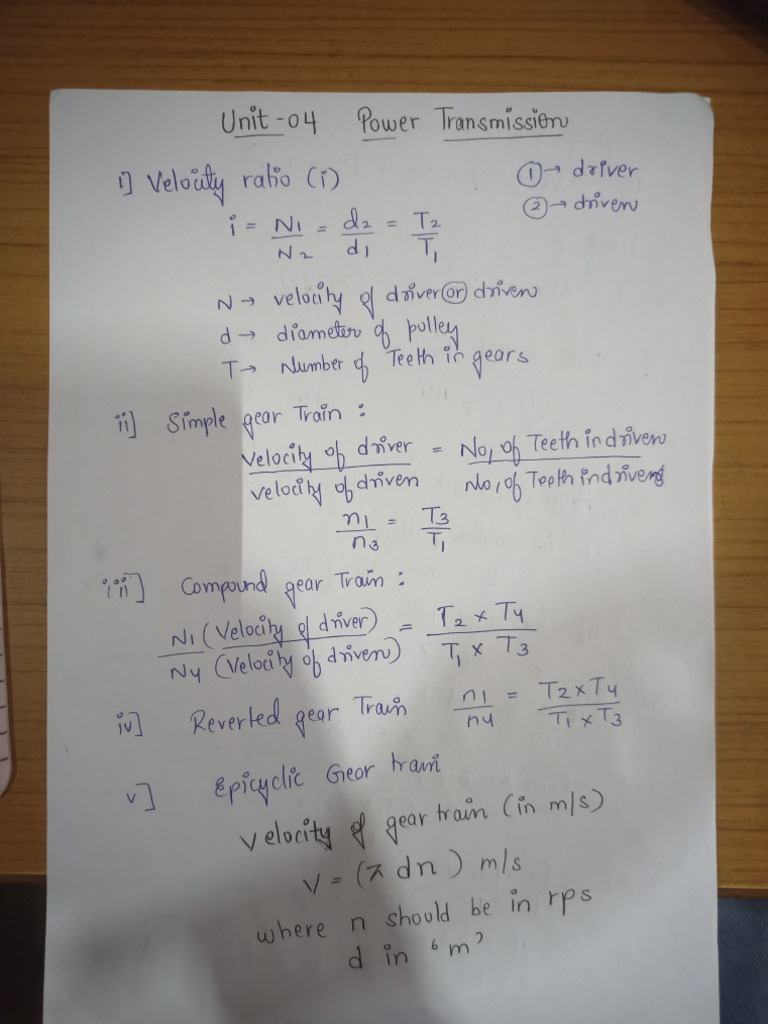 Unit-04 Power Transmission
i] Velocity ratio (i)
① → driver
② → driven
i = N1/N2 = d2/d1 = T2/T1
N → velocity of driver or driven
d → diameter of pulley
T → Number of Teeth in gears
ii] Simple gear Train :
Velocity of driver / velocity of driven = No, of Teeth in driven / No, of Teeth in driver
n1/n3 = T3/T1
iii] Compound gear Train :
N1 (Velocity of driver) / N4 (Velocity of driven) = T2 × T4 / T1 × T3
iv] Reverted gear Train n1/n4 = T2 × T4 / T1 × T3
v] Epicyclic Gear train
Velocity of gear train (in m/s)
V = (π dn) m/s
where n should be in rps
d in 'm'